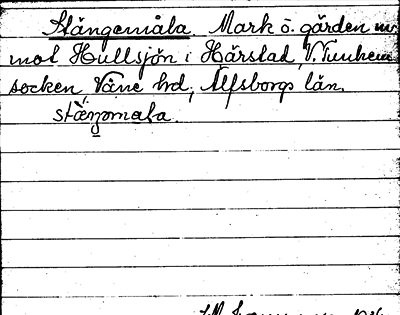 Stängemåla. Mark ö. gården in
mot Hullsjön i Härstad, V. Tunhem
socken, Väne hrd, Älfsborgs län.
stäŋomala.